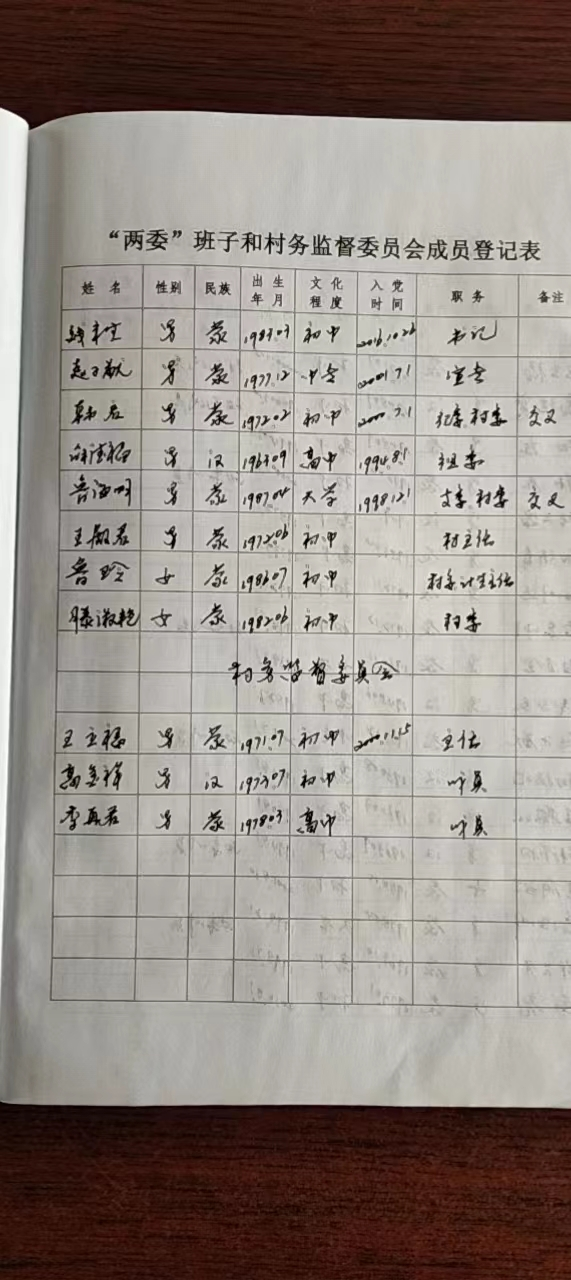 “两委”班子和村务监督委员会成员登记表
姓名 性别 民族 出生年月 文化程度 入党时间 职务 备注
男 蒙 1983.03 初中 2016.10.26 书记
男 蒙 1977.12 中专 2001.7.1 宣委
韩 男 蒙 1972.02 初中 2000.7.1 纪委 村委 交叉
男 汉 1963.09 高中 1994.8.1 组委
鲁海 男 蒙 1987.04 大学 1998.12.1 村委 交叉
王 男 蒙 1972.06 初中 村主任
鲁玲 女 蒙 1986.07 初中 村委计生主任
滕淑艳 女 蒙 1982.06 初中 村委
村务监督委员会
王玉福 男 蒙 1971.07 初中 2000.11.15 主任
高金祥 男 汉 1973.07 初中 委员
李真君 男 蒙 1978.03 高中 委员